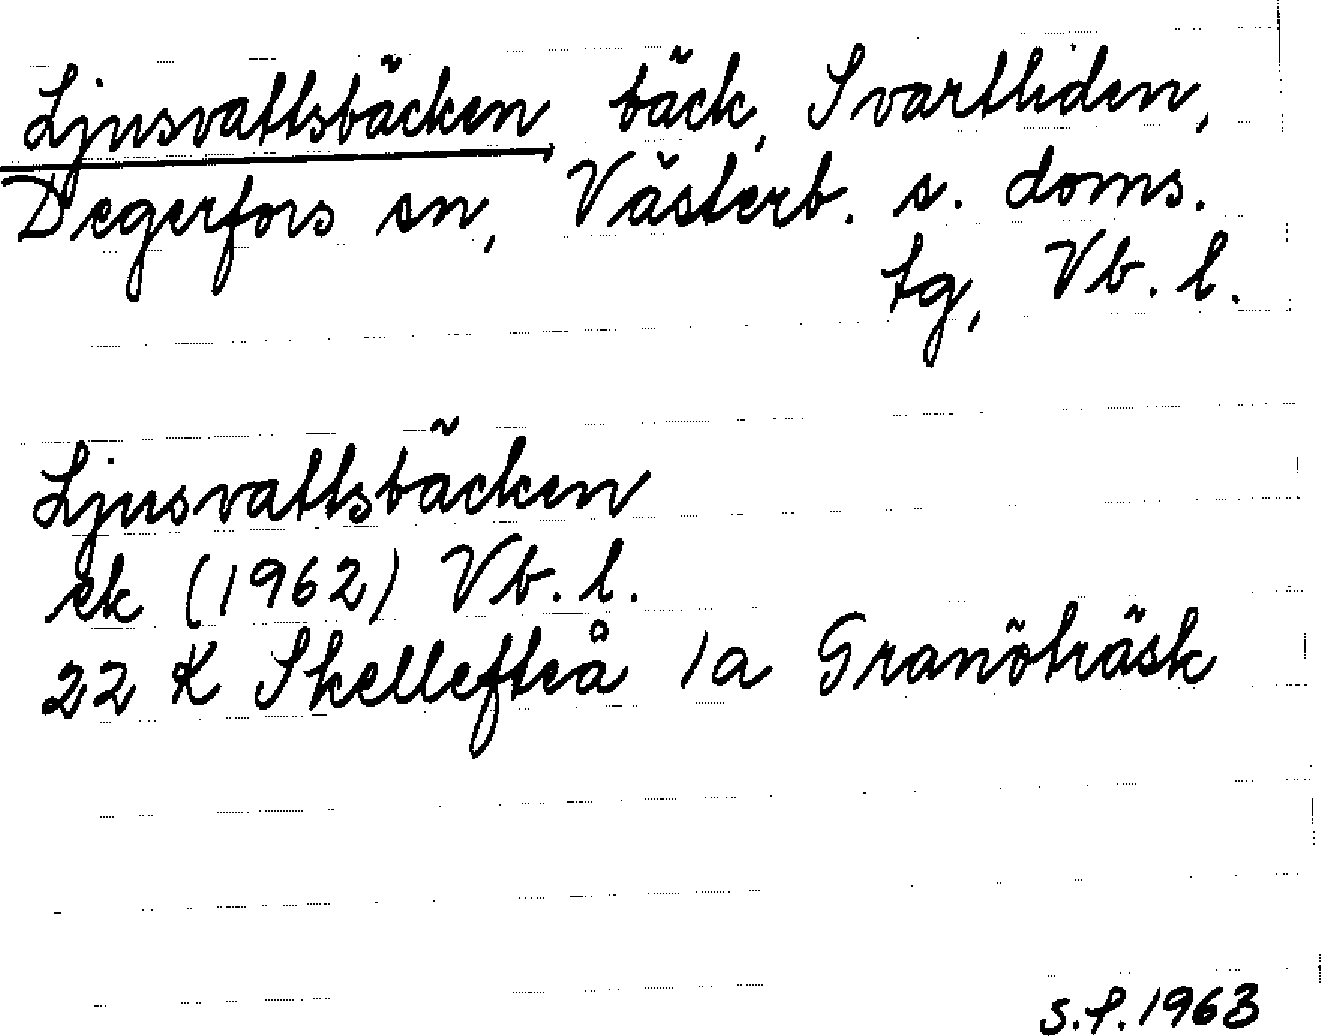 Ljusvattsbäcken, bäck, Svartliden,
Degerfors sn, Västerb. s. doms.
tg, Vb. l.
Ljusvattsbäcken
ek (1962) Vb. l.
22 K Skellefteå 1a Granöträsk
S.P. 1963